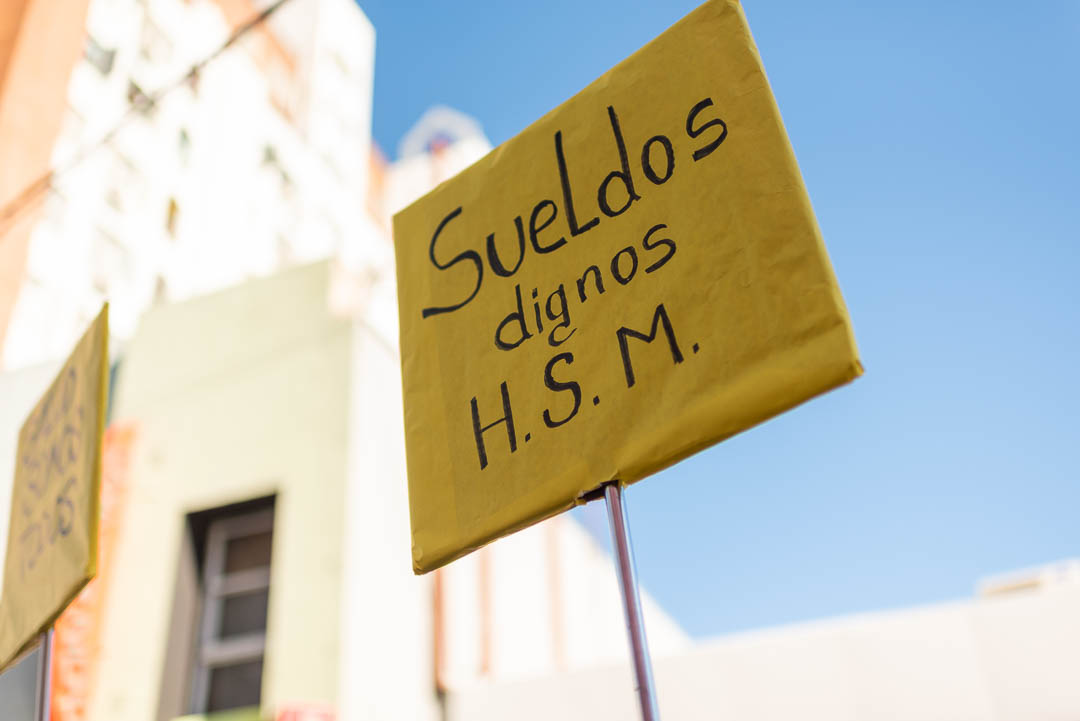 SueLdos
dignos
H.S.M.